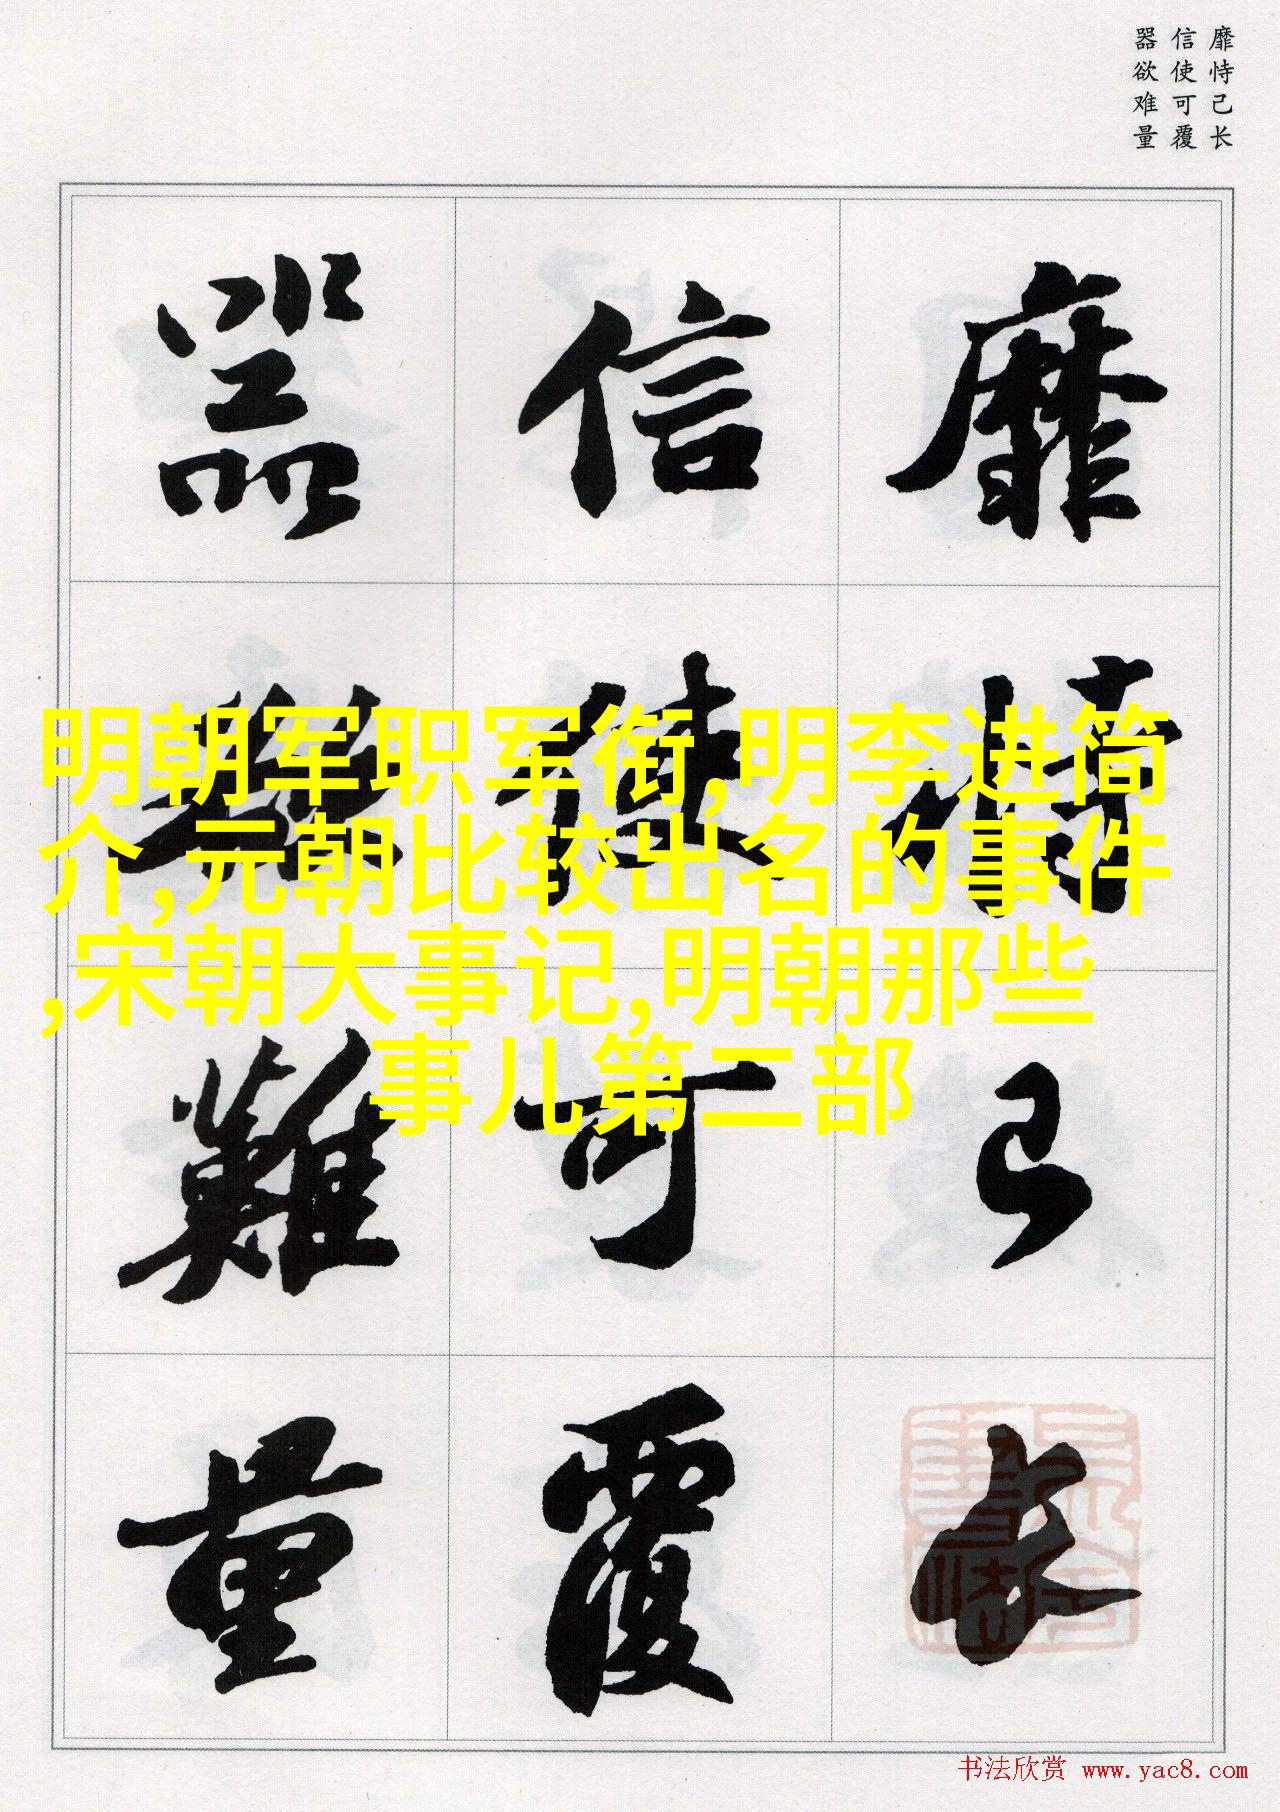 靡恃己长
信使可覆
器欲难量
靡恃己长
信使可覆
器欲難量
明朝军职军衔,明李进简
介,元朝比较出名的事件
,宋朝大事记,明朝那些
事儿第二部
书法欣赏 www.yac8.com